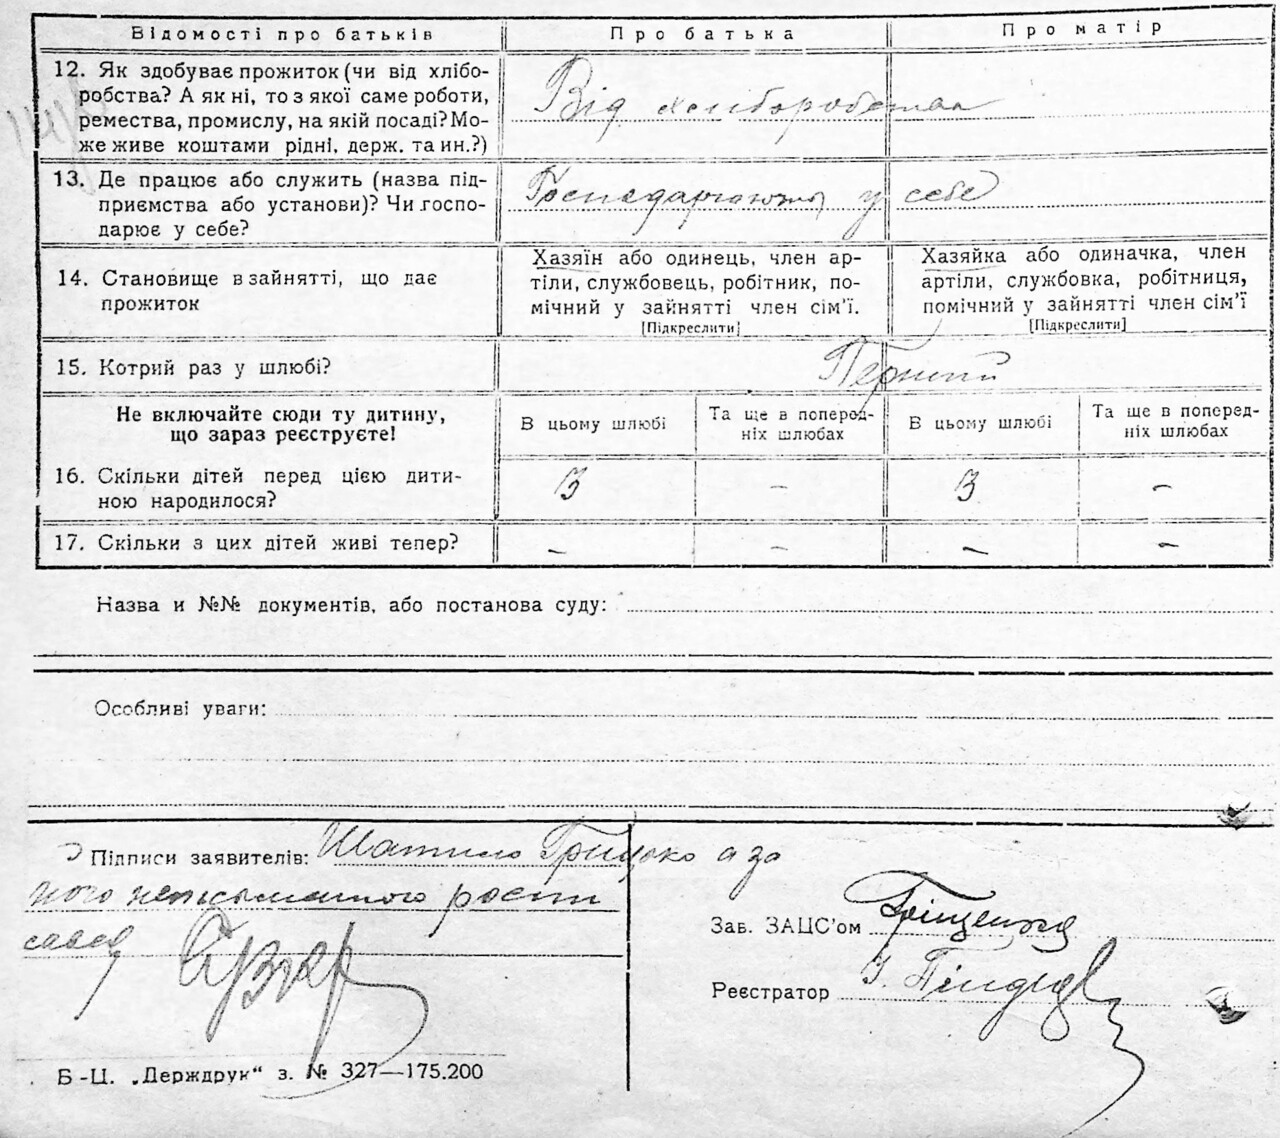 Відомості про батьків Про батька Про матір
12. Як здобуває прожиток (чи від хлібо-
робства? А як ні, то з якої саме роботи,
ремества, промислу, на якій посаді? Мо-
же живе коштами рідні, держ. та ин.?)
Від хліборобства
13. Де працює або служить (назва під-
приємства або установи)? Чи госпо-
дарює у себе?
Господарюють у себе
14. Становище в зайнятті, що дає
прожиток
Хазяїн або одинець, член ар-
тіли, службовець, робітник, по-
мічний у зайнятті член сім'ї.
[Підкреслити]
Хазяйка або одиначка, член
артіли, службовка, робітниця,
помічний у зайнятті член сім'ї
[Підкреслити]
15. Котрий раз у шлюбі?
Перший
Не включайте сюди ту дитину,
що зараз реєструєте!
В цьому шлюбі
Та ще в поперед-
ніх шлюбах
В цьому шлюбі
Та ще в поперед-
ніх шлюбах
16. Скільки дітей перед цією дити-
ною народилося?
3 – 3 –
17. Скільки з цих дітей живі тепер?
– – – –
Назва и №№ документів, або постанова суду:
Особливі уваги:
Підписи заявителів: Шатило Грицько а за
його неписьменного росп
савсь
Зав. ЗАЦС'ом Гріщенко
Реєстратор
Б-Ц. „Держдрук“ з. № 327—175.200